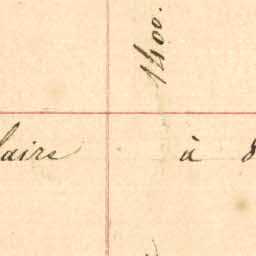 1400.
laire à 8